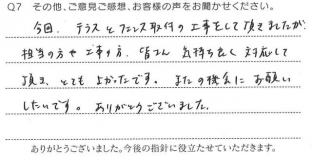 Q7 その他、ご意見ご感想、お客様の声をお聞かせください。
今回、テラスとフェンス取付の工事をして頂きましたが
担当の方や工事の方、皆さん 気持ち良く対応して
頂き、とてもよかったです。またの機会にお願い
したいです。ありがとうございました。
ありがとうございました。今後の指針に役立たせていただきます。